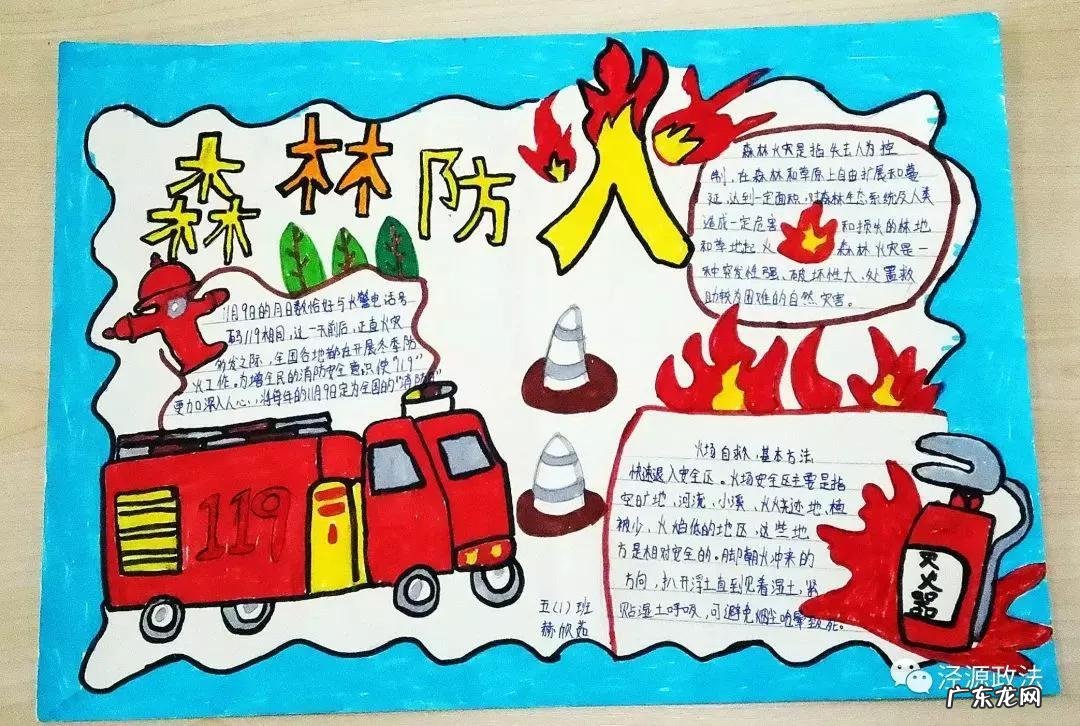 森林防火
森林火灾是指失去人为控
制,在森林和草原上自由扩展和蔓
延,达到一定面积,对森林生态系统及人类
造成一定危害 和损失的林地
和草地起火 森林火灾是一
种突发性强、破坏性大、处置救
助较为困难的自然灾害。
11月9日的月日数恰好与火警电话号
码119相同,这一天前后,正直火灾
多发之际,全国各地都在开展冬季防
火工作。为增全民的消防安全意识使"119"
更加深入人心,将每年的11月9日定为全国的"消防
119
火场自救、基本方法
快速退入安全区。火场安全区主要是指
空旷地、河流、小溪、火烧迹地、植
被少、火焰低的地区,这些地
方是相对安全的。脚朝火冲来的
方向,扒开浮土直到见着湿土,紧
贴湿土呼吸,可避免烟尘呛晕致死。
灭火器
五(1)班
赫欣茹
泾源政法
广东龙网